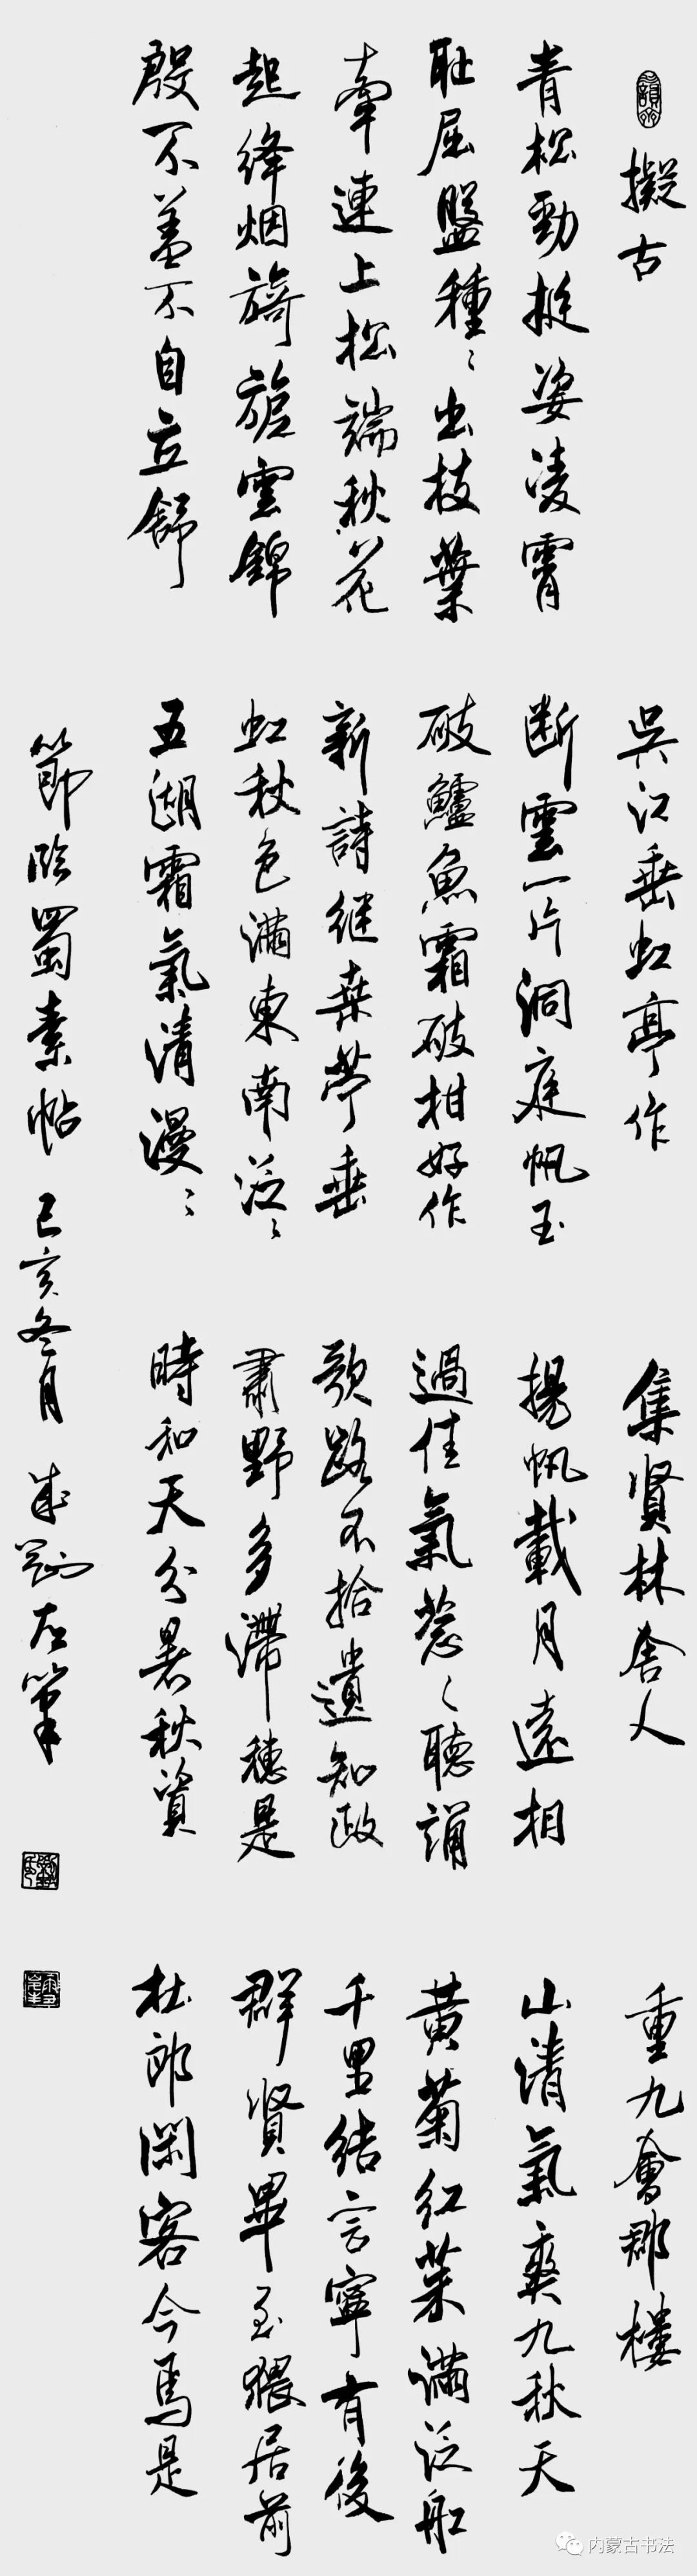 擬古
青松勁挺姿凌霄
耻屈盤種〻出枝葉
牽連上松端秋花
起絳烟旖旎雲錦
殷不羞不自立舒
吳江垂虹亭作
断雲一片洞庭帆玉
破鱸魚霜破柑好作
新詩継桒苧垂
虹秋色满東南泛〻
五湖霜氣清漫〻
集賢林舍人
揚帆載月遠相
過佳氣葱〻聴誦
歌路不拾遺知政
肅野多滯穗是
時和天分暑秋資
重九會郡樓
山清氣爽九秋天
黄菊红茱满泛船
千里結言寧有後
群賢畢至猥居前
杜郎閑客今焉是
節临蜀素帖 己亥冬月 成剛左筆
内蒙古书法